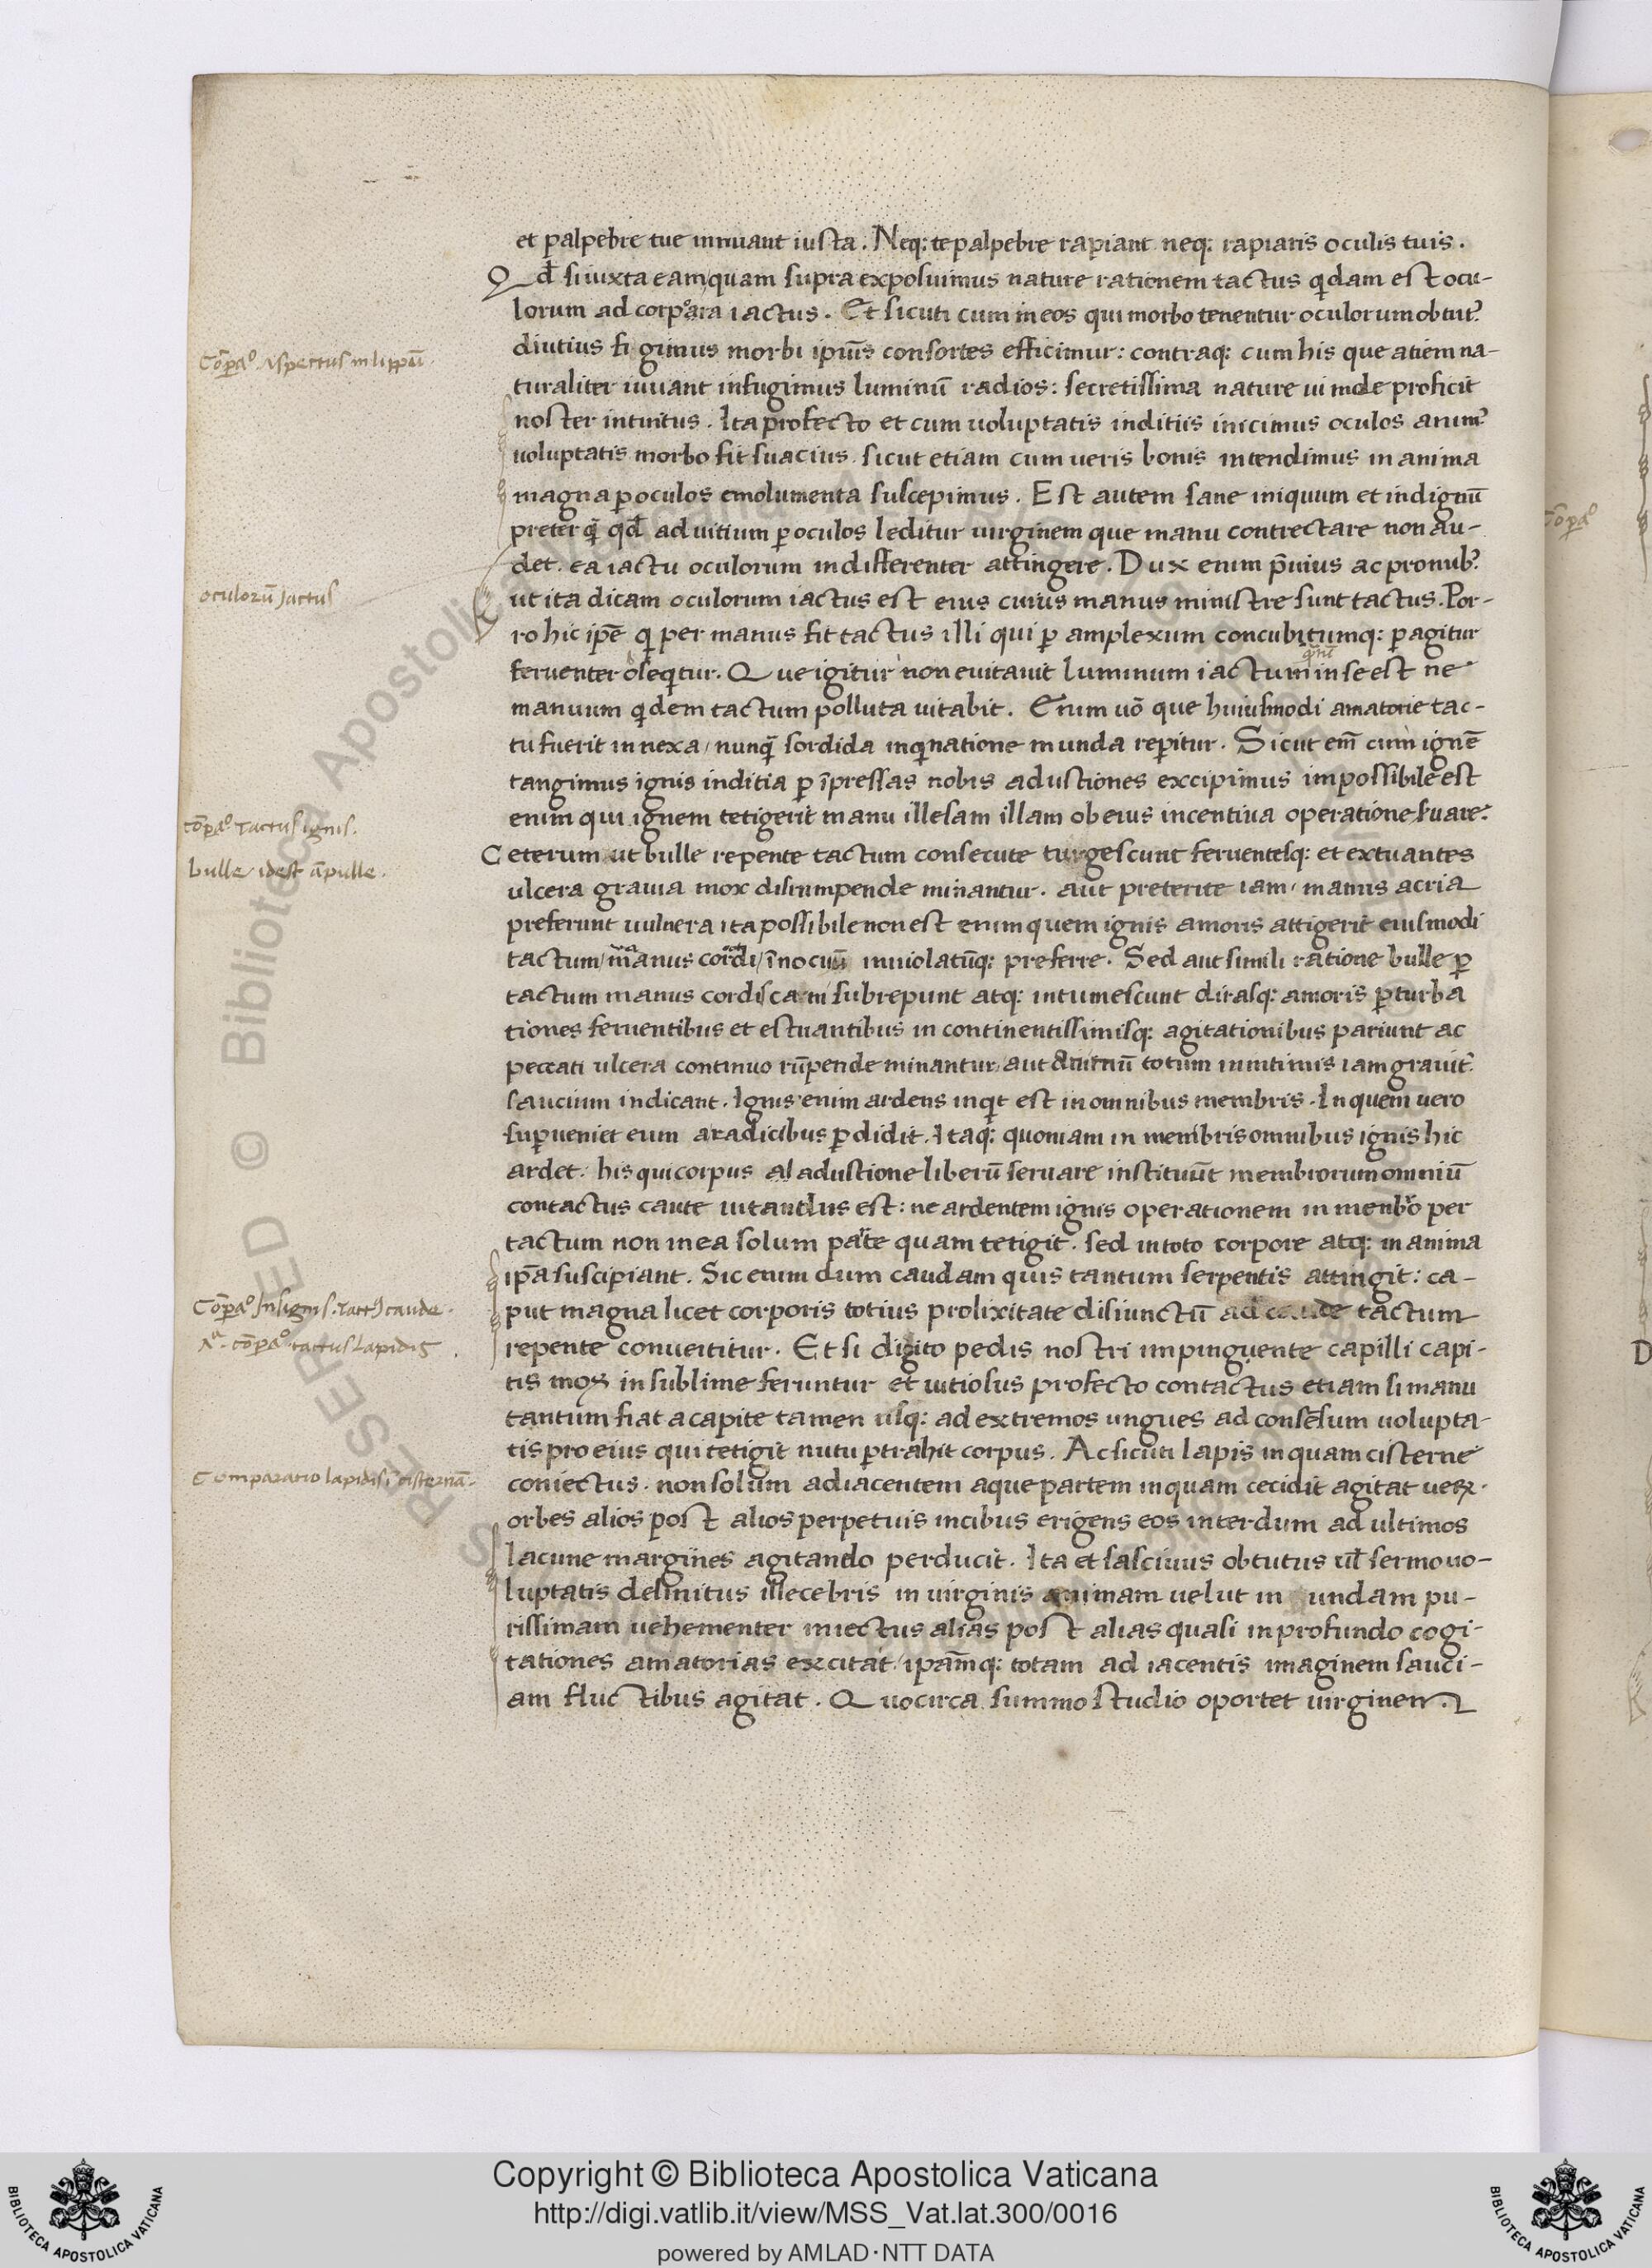 et palpebre tue innuant iusta. Neq; te palpebre rapiant neq; rapiaris oculis tuis.
Qd̄ si iuxta eam quam supra exposuimus nature rationem tactus qdam est ocu-
lorum ad corpora iactus. Et sicuti cum in eos qui morbo tenentur oculorum obtut9
Cōpao aspectus in lippum.
diutius figimus morbi ipius consortes efficimur: contraq; cum his que atiem na-
turaliter iuuant infugimus luminū radios: secretissima nature ui inde proficit
noster intuitus. Ita profecto et cum uoluptatis inditiis inicimus oculos anim9
uoluptatis morbo fit suacius. sicut etiam cum ueris bonis intendimus in anima
magna p oculos emolumenta suscepimus. Est autem sane iniquum et indignū
preter q̄ qd̄ ad uitium p oculos leditur uirginem que manu contrectare non au-
det. ea iactu oculorum indifferenter attingere. Dux enim p̄uius ac pronub9
oculorū Jactus
ut ita dicam oculorum iactus est eius cuius manus ministre sunt tactus. Por-
ro hic ipē q per manus fit tactus illi qui p amplexum concubitumq; pagitur
feruenter obseqtur. Que igitur non euitauit luminum iactum in se est ne
manuum qdem tactum polluta uitabit. Enim uō que huiusmodi amatorie tac-
tu fuerit innexa / nunq̄ sordida inqnatione munda repitur. Sicut em̄ cum ignē
tangimus ignis inditia p īpressas nobis adustiones excipimus impossibile est
Cōpao tactus ignis.
enim qui ignem tetigerit manu illesam illam ob eius incentiua operatione suare.
Ceterum ut bulle repente tactum consecute turgescunt feruentesq; et extuantes
bulle idest āpulle.
ulcera grauia mox disrumpende minantur. aut preterite iam / manus acria
preferunt uulnera ita possibile non est enim quem ignis amoris attigerit eiusmodi
tactum / manus cordi / īnocuū inuiolatūq; preferre. Sed aut simili ratione bulle p
tactum manus cordis carni subrepunt atq; intumescunt dirasq; amoris pturba
tiones feruentibus et estuantibus incontinentissimisq; agitationibus pariunt ac
peccati ulcera continuo rūpende minantur / aut animū totum in intimis iam grauit
saucium indicant. Ignis enim ardens inqt est in omnibus membris. In quem uero
supueniet eum a radicibus pdidit. Itaq; quoniam in membris omnibus ignis hic
ardet. his qui corpus al adustione liberū seruare instituūt membrorum omniū
contactus caute uitandus est: ne ardentem ignis operationem in menbro per
tactum non in ea solum parte quam tetigit. sed in toto corpore atq; in anima
ipā suscipiant. Sic enim dum caudam quis tantum serpentis attingit: ca-
Cōpao Insignis. tact9 caude.
put magna licet corporis totius prolixitate disiunctū ad caude tactum
Cōpao tactus Lapidis
repente conuertitur. Et si digito pedis nostri impinguente capilli capi-
tis mox in sublime feruntur et uitiosus profecto contactus etiam si manu
tantum fiat a capite tamen usq; ad extremos ungues ad consēsum uolupta-
tis pro eius qui tetigit nutu ptrahit corpus. Ac sicuti lapis in quam cisterne
Comparatio lapidis ī cisternā.
coniectus. non solum adiacentem aque partem in quam cecidit agitat uerx.
orbes alios post alios perpetuis incibus erigens eos interdum ad ultimos
lacune margines agitando perducit. Ita et lasciuus obtutus ul̄ sermo uo-
luptatis delinitus illecebris in uirginis animam uelut in undam pu-
rissimam uehementer iniectus alias post alias quasi in profundo cogi-
tationes amatorias excitat / ipamq; totam ad iacentis imaginem sauci-
am fluctibus agitat. Quocirca summo studio oportet uirginem.
Copyright © Biblioteca Apostolica Vaticana
http://digi.vatlib.it/view/MSS_Vat.lat.300/0016
powered by AMLAD·NTT DATA
BIBLIOTECA APOSTOLICA VATICANA
BIBLIOTECA APOSTOLICA VATICANA